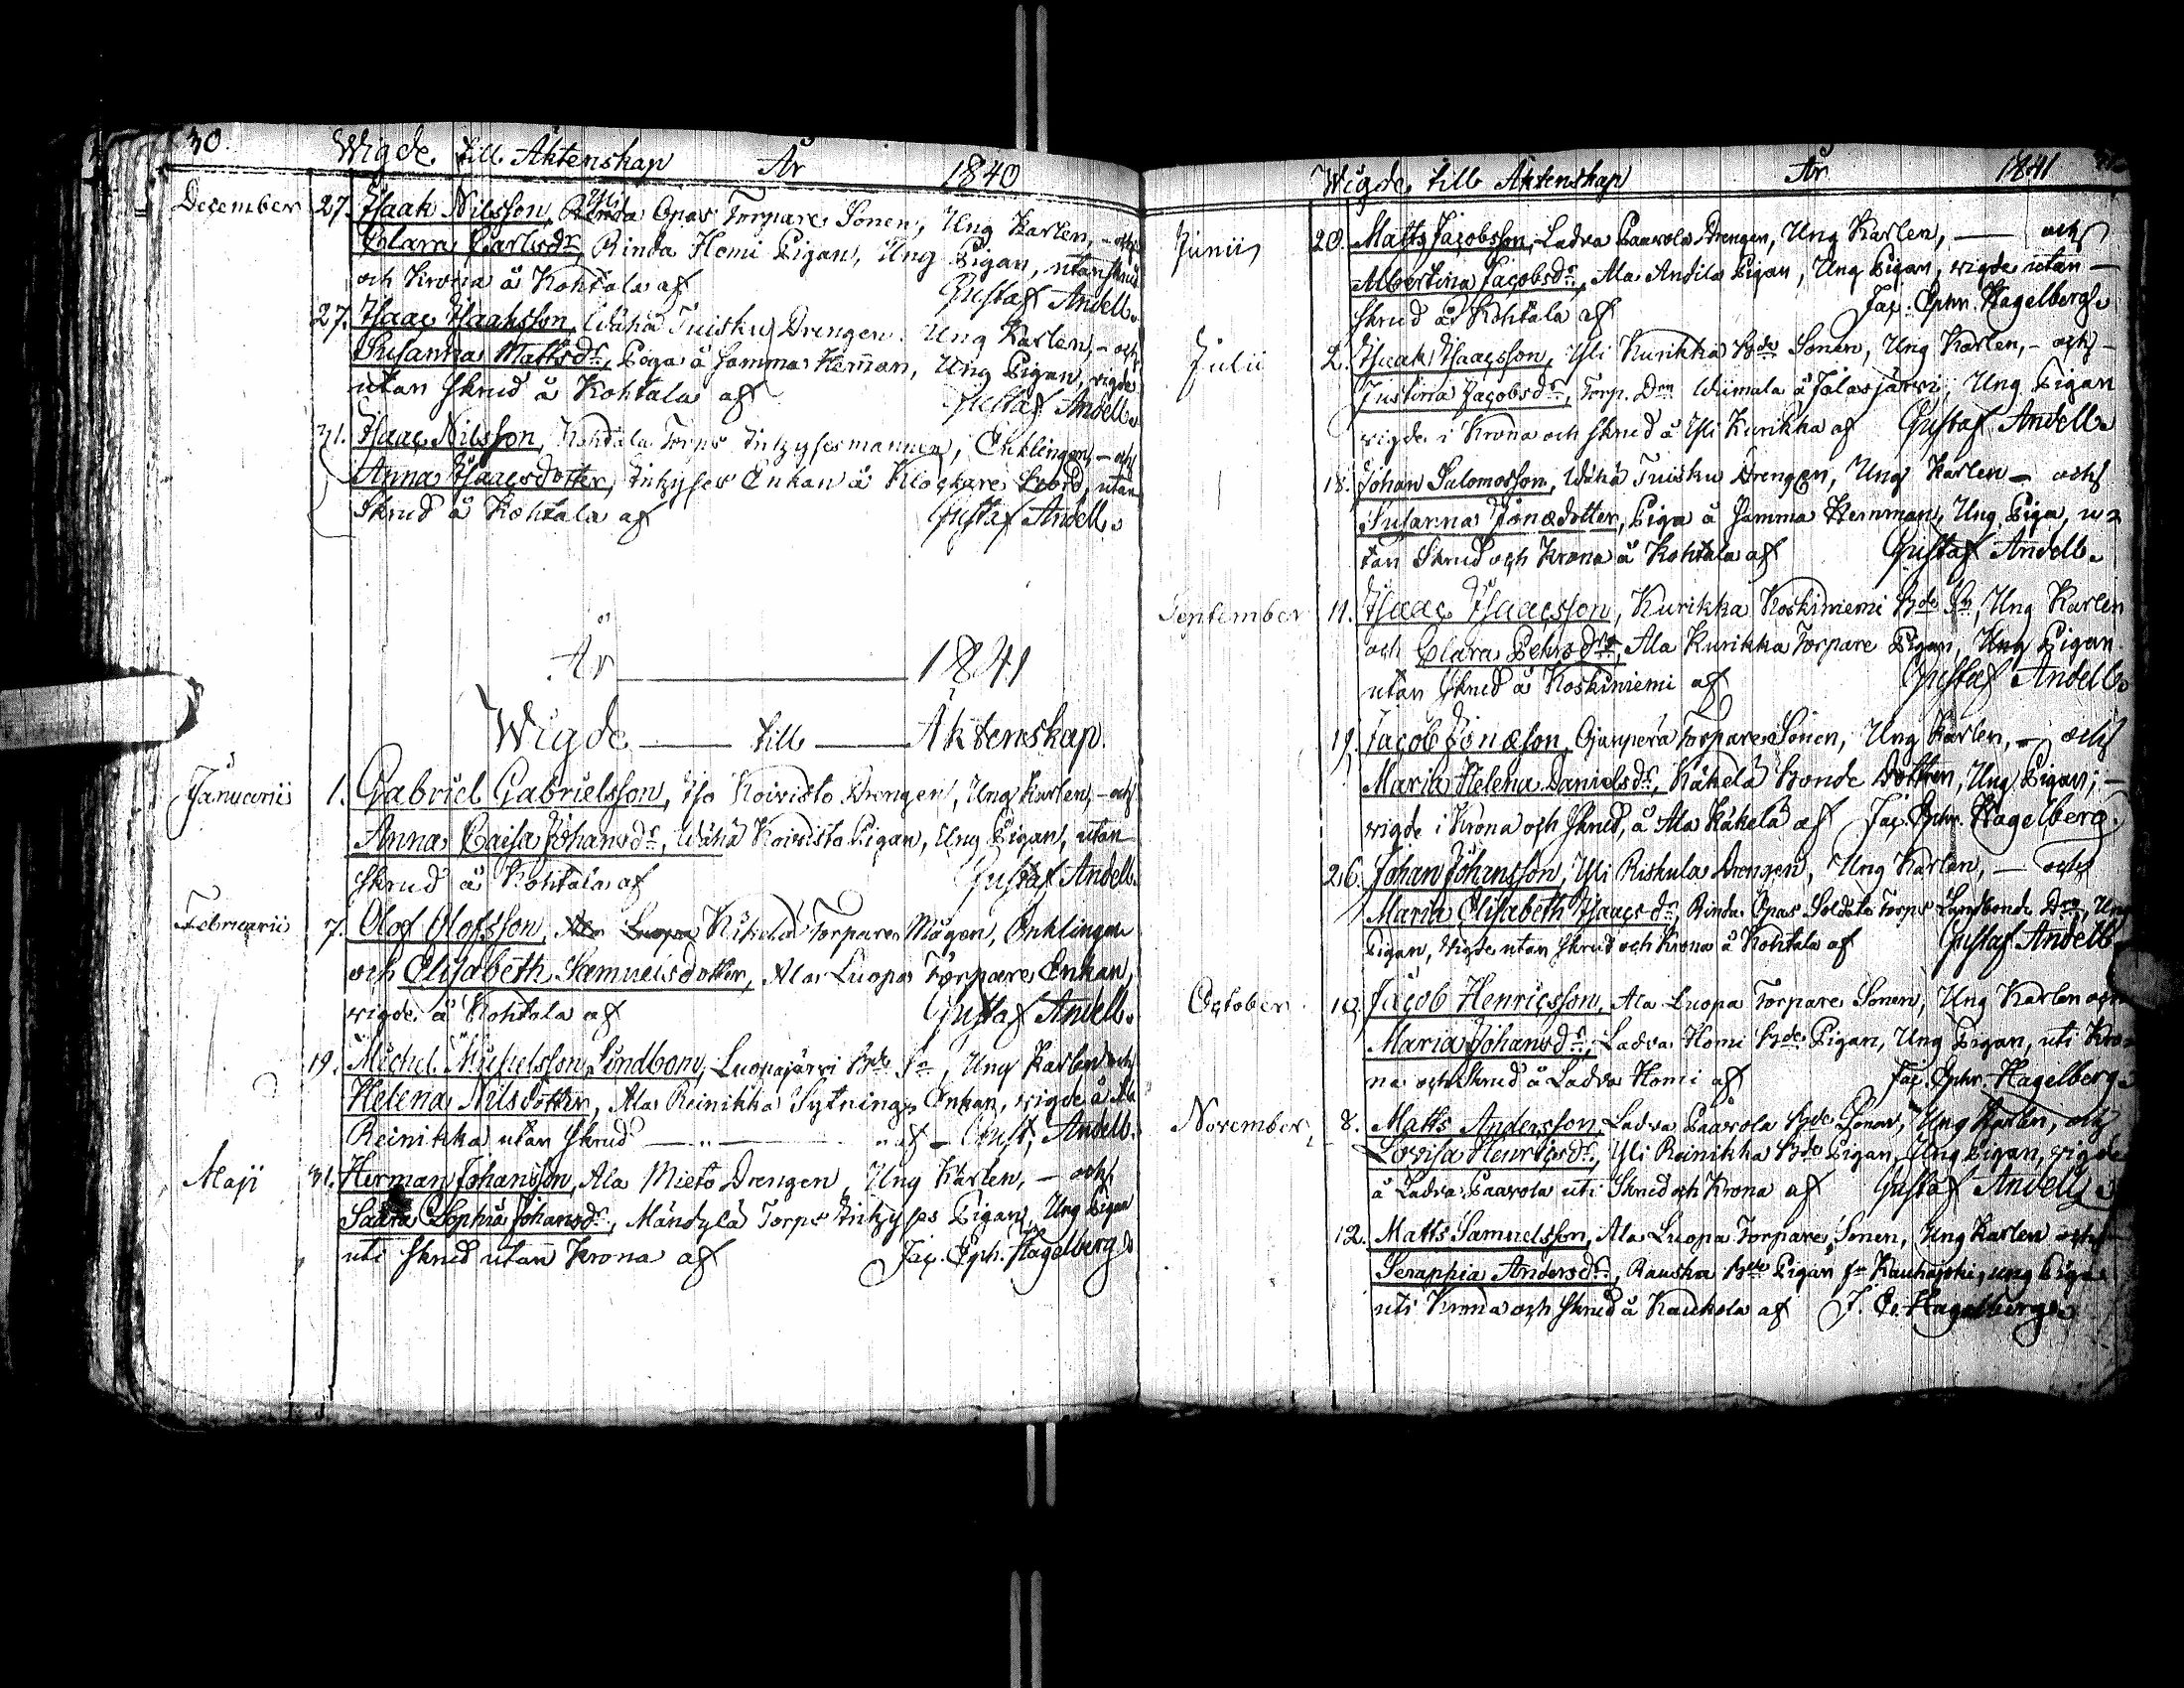 30. Wigde till Äktenskap År 1840
December 27. Isaak Nilsson, Yli Rinda Opas Torpare Sonen, Ung Karlen, - och
Clara Carlsdr, Rinda Homi Pigan, Ung Pigan, utan skrud
och Krona å Kohtala af Gustaf Andell.
27. Isaac Isaaksson, Wähä Tuisku Drengen, Ung Karlen, - och
Susanna Mattsdr, Piga å samma Heman, Ung Pigan, wigde
utan skrud å Kohtala af Gustaf Andell.
31. Isaac Nilsson, Kohtala Torps Inhysesmannen, Enklingen, - och
Anna Isaacsdotter, Inhyses Enkan å Klockare Bord, utan
Skrud å Kohtala af Gustaf Andell.
År 1841
Wigde till Äktenskap.
Januarii 1. Gabriel Gabrielsson, Iso Koivisto Drengen, Ung Karlen, - och
Anna Caisa Johansdr, Wähä Koivisto Pigan, Ung Pigan, utan
skrud å Kohtala af Gustaf Andell.
Februarii 7. Olof Olofsson, Ala Luopa Käkelä Torpare Mågen, Enklingen
och Elisabeth Samuelsdotter, Ala Luopa Torpare Enkan,
wigde å Kohtala af Gustaf Andell.
19. Michel Michelsson Lindbom, Luopajärvi Bde Sn, Ung Karlen och
Helena Nilsdotter, Ala Reinikka Sytnings Enkan, wigde å Ala
Reinikka utan skrud — " — " af - Gust. Andell.
Maji 31. Herman Johansson, Ala Mieto Drengen, Ung Karlen, - och
Saara Sophia Johansdr, Mändylä Torps Inhyses Pigan, Ung Pigan
uti skrud utan Krona af Jac. Eph. Hagelberg
Wigde till Äktenskap År 1841
Junii 20. Matts Jacobsson, Ladva Paavola Drengen, Ung Karlen, — och
Albertina Jacobsdr, Ala Andila Pigan, Ung Pigan, wigde utan -
skrud å Kohtala af Jac. Ephr. Hagelberg.
Julii 2. Isaak Isaacsson, Yli Kurikka Bde Sonen, Ung Karlen, - och -
Justina Jacobsdr, Torp. Drn Wiimala å Jalasjärvi, Ung Pigan
wigde i Krona och skrud å Yli Kurikka af Gustaf Andell.
18. Johan Salomosson, Wähä Tuisku Drengen, Ung Karlen - och
Susanna Jonædotter, Piga å samma Hemman, Ung Piga, u-
tan Skrud och Krona å Kohtala af Gustaf Andell.
September 11. Isaac Isaacsson, Kurikka Koskiniemi Bde Sn, Ung Karlen
och Clara Pehrsdr, Ala Kurikka Torpare Pigan, Ung Pigan
utan skrud å Koskiniemi af Gustaf Andell.
19. Jacob Jonæson, Ojanperä Torpare Sonen, Ung Karlen, - och
Maria Helena Danielsdr, Käkelä Bonde Dottren, Ung Pigan; -
wigde i Krona och skrud, å Ala Käkelä af Jac. Ephr. Hagelberg.
26. Johan Johansson, Yli Riskula Drengen, Ung Karlen, — och
Maria Elisabeth Isaacsdr, Rinda Opas Soldats Torps Landbonde Drn, Ung
Pigan, wigde utan skrud och Krona å Kohtala af Gustaf Andell
October 10. Jacob Henricsson, Ala Luopa Torpare Sonen, Ung Karlen och
Maria Johansdr, Ladva Homi Bde Pigan, Ung Pigan, uti Kro-
na och Skrud å Ladva Homi af Jac. Ephr. Hagelberg
November 8. Matts Andersson, Ladva Paavola Bde Sonen, Ung Karlen, och
Lovisa Henricsdr, Yli Reinikka Bde Pigan, Ung Pigan, wigde
å Ladva Paavola uti Skrud och Krona af Gustaf Andell
12. Matts Samuelsson, Ala Luopa Torpare Sonen, Ung Karlen och
Seraphia Andersdr, Rauska Bde Pigan fr Kauhajoki, ung Pigan
uti Krona och skrud å Kaukola af J. E. Hagelberg.